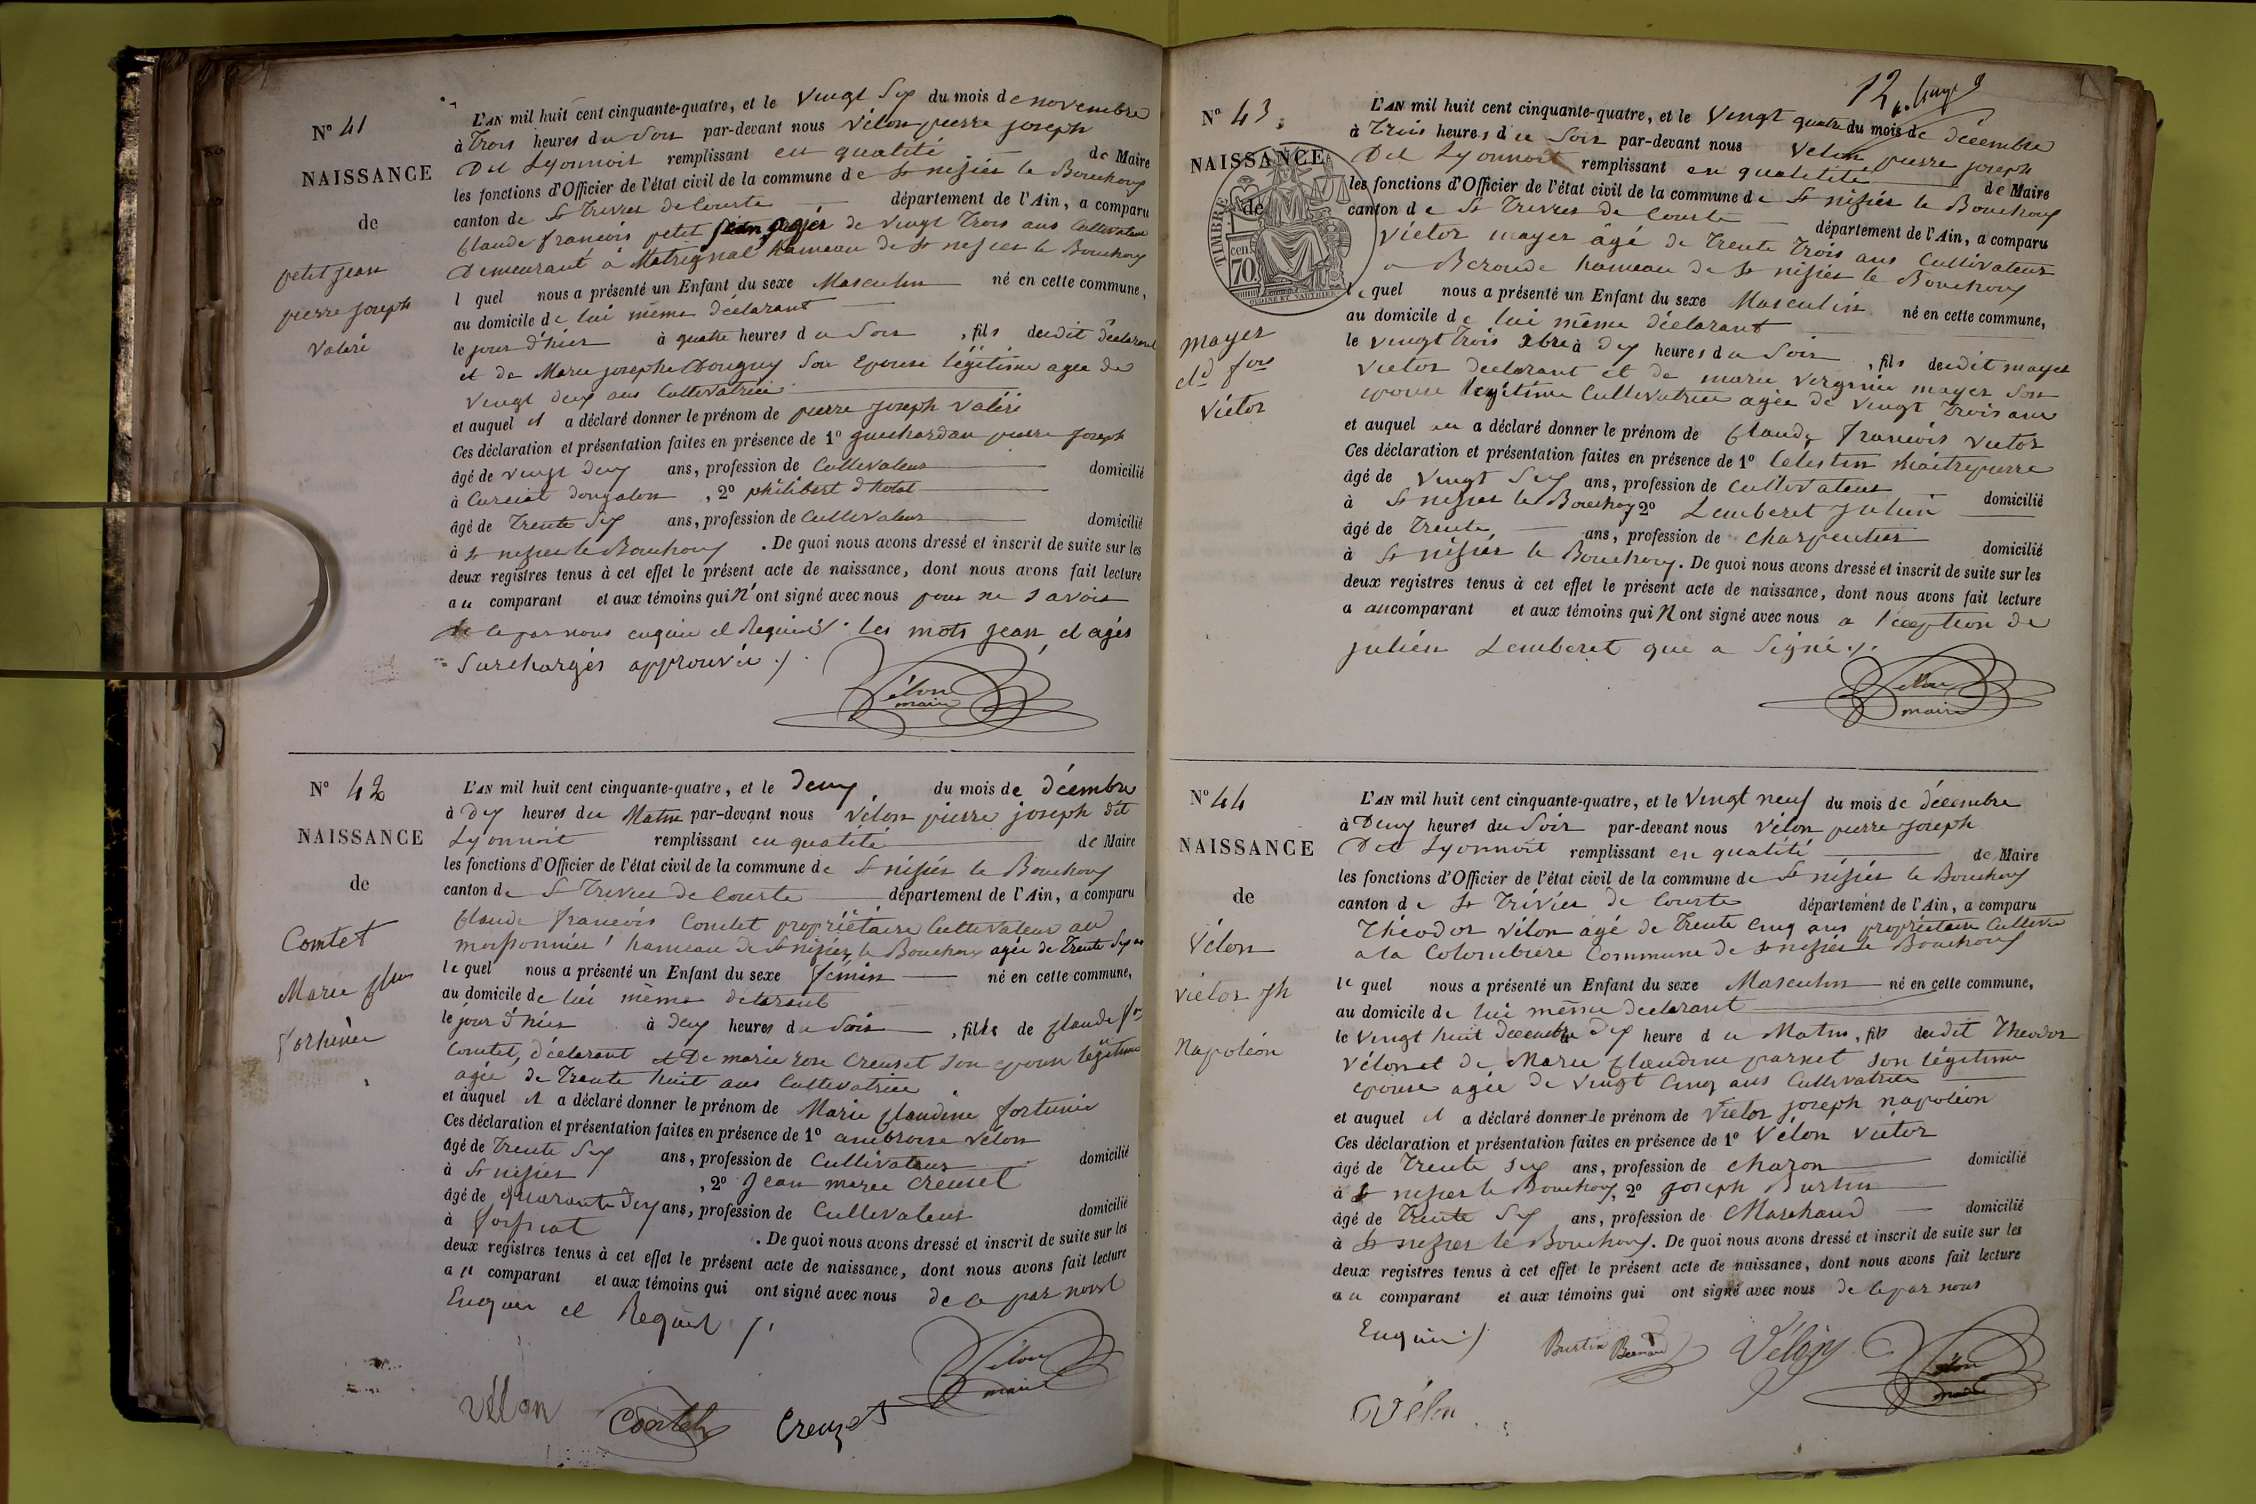 N° 41
NAISSANCE
de
petit jean
pierre joseph
Valéri
L'AN mil huit cent cinquante-quatre, et le Vingt Six du mois de novembre
à Trois heures du Soir par-devant nous Vélon pierre joseph
Dit Lyonnoit remplissant en qualité de Maire
les fonctions d'Officier de l'état civil de la commune de St nisier le Bouchoux
canton de St Trivier de Courte département de l'Ain, a comparu
Claude francois petit jean agés de vingt Trois ans Cultivateur
Demeurant à Matrignat hameau de St nisier le Bouchoux
l quel nous a présenté un Enfant du sexe Masculin né en cette commune,
au domicile de lui même déclarant
le jour d'hier à quatre heures du Soir, fils dudit déclarant
et de Marie josephe Douguy Son Epouse légitime agée de
Vingt deux ans Cultivatrice
et auquel il a déclaré donner le prénom de pierre joseph Valéri
Ces déclaration et présentation faites en présence de 1° guichardan pierre joseph
âgé de vingt deux ans, profession de Cultivateur domicilié
à Curciat dongalon, 2° philibert d'hotel
âgé de Trente Six ans, profession de Cultivateur domicilié
à St nisier le Bouchoux. De quoi nous avons dressé et inscrit de suite sur les
deux registres tenus à cet effet le présent acte de naissance, dont nous avons fait lecture
au comparant et aux témoins qui n'ont signé avec nous pour ne savoir
de ce par nous enquis et Requis. les mots jean et agés
Surchargés approuvée ./.
Vélon
maire
N° 42
NAISSANCE
de
Comtet
Marie
fortunée
L'AN mil huit cent cinquante-quatre, et le deux du mois de décembre
à dix heures du Matin par-devant nous Vélon pierre joseph dit
Lyonnoit remplissant en qualité de Maire
les fonctions d'Officier de l'état civil de la commune de St nisier le Bouchoux
canton de St Trivier de Courte département de l'Ain, a comparu
Claude francois Comtet propriétaire Cultivateur au
hameau de St nisier le Bouchoux agée de Trente Six ans
le quel nous a présenté un Enfant du sexe fémin né en cette commune,
au domicile de lui même declarant
le jour d'hier à deux heures du Soir, fille de Claude fr
Comtet, déclarant et De marie rose Creuset Son epouse légitime
agée de Trente huit ans Cultivatrice
et auquel il a déclaré donner le prénom de Marie Claudine fortunée
Ces déclaration et présentation faites en présence de 1° ambroise Vélon
âgé de Trente Six ans, profession de Cultivateur domicilié
à St nisier, 2° Jean marie Creuset
âgé de quarante deux ans, profession de Cultivateur domicilié
à foissiat. De quoi nous avons dressé et inscrit de suite sur les
deux registres tenus à cet effet le présent acte de naissance, dont nous avons fait lecture
au comparant et aux témoins qui ont signé avec nous de ce par nous
Enquis et Requis /.
Vélon
maire
vélon Comtet Creuzet
12.
N° 43
TIMBRE
cen
70
NAISSANCE
de
mayer
Cld fois
Victor
L'AN mil huit cent cinquante-quatre, et le Vingt quatre du mois de décembre
à Trois heures du Soir par-devant nous Vélon pierre joseph
Dit Lyonnoit remplissant en qualitité de Maire
les fonctions d'Officier de l'état civil de la commune de St nisier le Bouchoux
canton de St Trivier de Courte département de l'Ain, a comparu
Victor mayer âgé de Trente Trois ans Cultivateur
a hameau de St nisier le Bouchoux
le quel nous a présenté un Enfant du sexe Masculin né en cette commune,
au domicile de lui même déclarant
le vingt Trois Xbre à dix heures du Soir, fils dudit mayer
Victor declarant et de marie virginie mayer Son
epouse légitime Cultivatrice agée de Vingt Trois ans
et auquel a déclaré donner le prénom de Claude francois Victor
Ces déclaration et présentation faites en présence de 1° Celestin Maitrepierre
âgé de Vingt Six ans, profession de Cultivateur domicilié
à St nisier le Bouchoux 2° Lemberet julien
âgé de Trente ans, profession de Charpentier domicilié
à St nisier le Bouchoux. De quoi nous avons dressé et inscrit de suite sur les
deux registres tenus à cet effet le présent acte de naissance, dont nous avons fait lecture
a au comparant et aux témoins qui N ont signé avec nous a l'ception de
julien Lemberet que a Signé ./.
Vélon
maire
N° 44
NAISSANCE
de
Vélon
victor jh
Napoléon
L'AN mil huit cent cinquante-quatre, et le Vingt neuf du mois de décembre
à Deux heures du Soir par-devant nous Vélon pierre joseph
Dit Lyonnoit remplissant en qualité de Maire
les fonctions d'Officier de l'état civil de la commune de St nisier le Bouchoux
canton de St Trivier de Courte département de l'Ain, a comparu
Théodor Vélon agé de Trente Cinq ans propriétaire
a la Colombiere Commune de St nisier le Bouchoux
le quel nous a présenté un Enfant du sexe Masculin né en cette commune,
au domicile de lui même declarant
le vingt huit decembre dix heure du Matin, fils dudit Theodor
Vélon et de Marie Claudine parnet Son légitime
epouse agée de Vingt Cinq ans Cultivatrice
et auquel il a déclaré donner le prénom de Victor joseph napoléon
Ces déclaration et présentation faites en présence de 1° Vélon Victor
âgé de Trente Six ans, profession de Charon domicilié
à St nisier le Bouchoux, 2° joseph Burtin
âgé de Trente Six ans, profession de Marchand domicilié
à St nisier le Bouchoux. De quoi nous avons dressé et inscrit de suite sur les
deux registres tenus à cet effet le présent acte de naissance, dont nous avons fait lecture
au comparant et aux témoins qui ont signé avec nous de ce par nous
Enquis ./.
Burtin Vélon Vélon
maire
Vélon